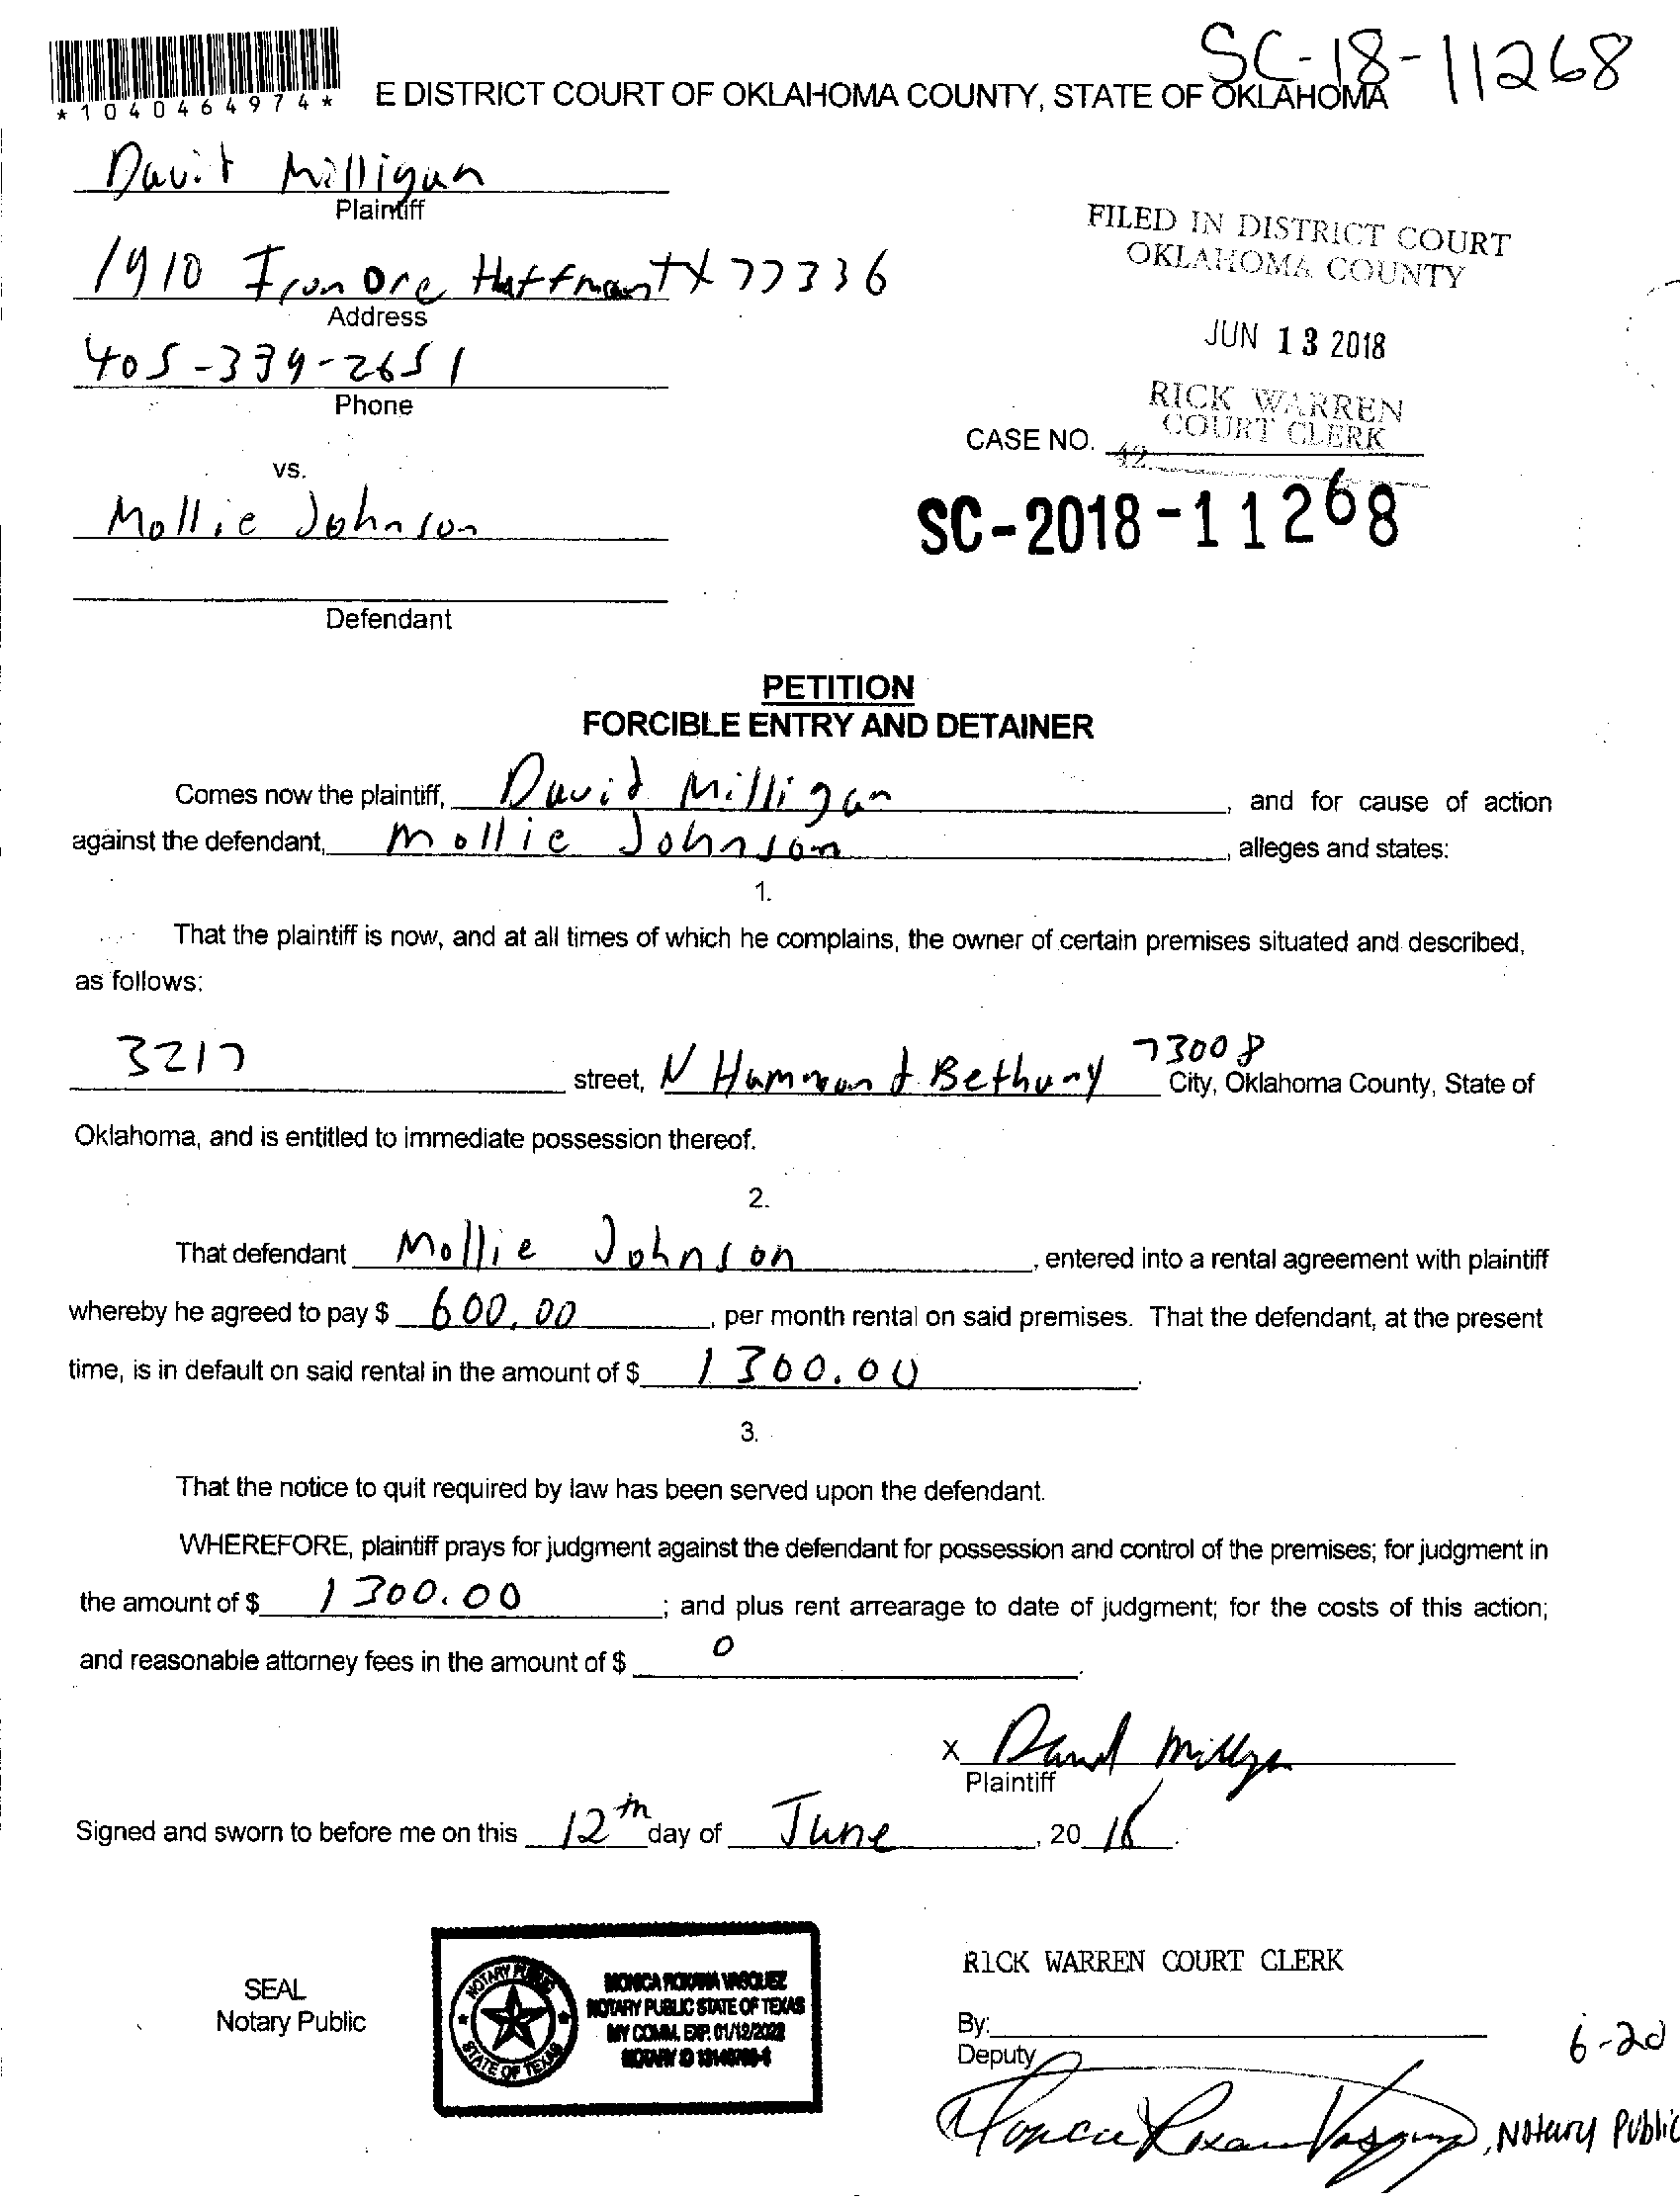 SC-18-11268
*1040464974*
E DISTRICT COURT OF OKLAHOMA COUNTY, STATE OF OKLAHOMA
David Milligan
Plaintiff
FILED IN DISTRICT COURT
OKLAHOMA COUNTY
1910 Iron Ore Huffman TX 77336
Address
JUN 13 2018
405-339-2651
Phone
RICK WARREN
COURT CLERK
CASE NO.
42
vs.
Mollie Johnson
SC-2018-11268
Defendant
PETITION
FORCIBLE ENTRY AND DETAINER
Comes now the plaintiff, David Milligan, and for cause of action
against the defendant, Mollie Johnson, alleges and states:
1.
That the plaintiff is now, and at all times of which he complains, the owner of certain premises situated and described,
as follows:
3217 street, N Hammond Bethany 73008 City, Oklahoma County, State of
Oklahoma, and is entitled to immediate possession thereof.
2.
That defendant Mollie Johnson, entered into a rental agreement with plaintiff
whereby he agreed to pay $ 600.00, per month rental on said premises. That the defendant, at the present
time, is in default on said rental in the amount of $ 1300.00.
3.
That the notice to quit required by law has been served upon the defendant.
WHEREFORE, plaintiff prays for judgment against the defendant for possession and control of the premises; for judgment in
the amount of $ 1300.00; and plus rent arrearage to date of judgment; for the costs of this action;
and reasonable attorney fees in the amount of $ 0.
X David Milligan
Plaintiff
Signed and sworn to before me on this 12th day of June, 2018.
SEAL
Notary Public
NOTARY PUBLIC
STATE OF TEXAS
MONICA ROXANA VASQUEZ
NOTARY PUBLIC STATE OF TEXAS
MY COMM. EXP. 01/12/2022
NOTARY ID
RICK WARREN COURT CLERK
By:
Deputy
6-20
Monica Roxana Vasquez, Notary Public